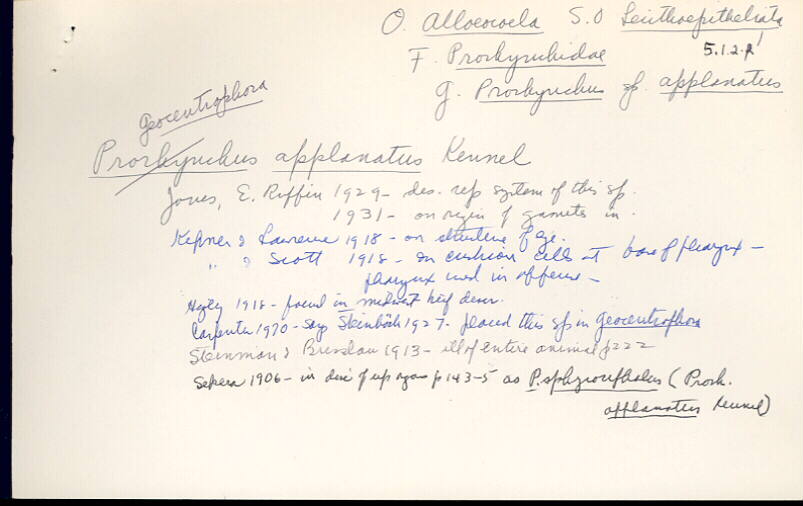 O. Alloeocoela S.O Lecithoepitheliata
5.1.2.A
F. Prorhynchidae
G. Prorhynchus sp. applanatus
Geocentrophora
Prorhynchus applanatus Kennel
Jones, E. Ruffin 1929 - des. rep system of this sp.
1931 - on origin of gametes in.
Kepner & Lawrence 1918 - on structure of eye.
" & Scott 1918 - on cushion cells at base of pharynx -
pharynx used in offense -
Higley 1918 - found in midwest brief descr.
Carpenter 1970 - says Steinböck 1927 - placed this sp in Geocentrophora
Steinman & Bresslau 1913 - ill of entire animal p222
Sekera 1906 - in disc of rep organs p143-5 as P. sphyrocephalus (Proch.
applanatus Kennel)